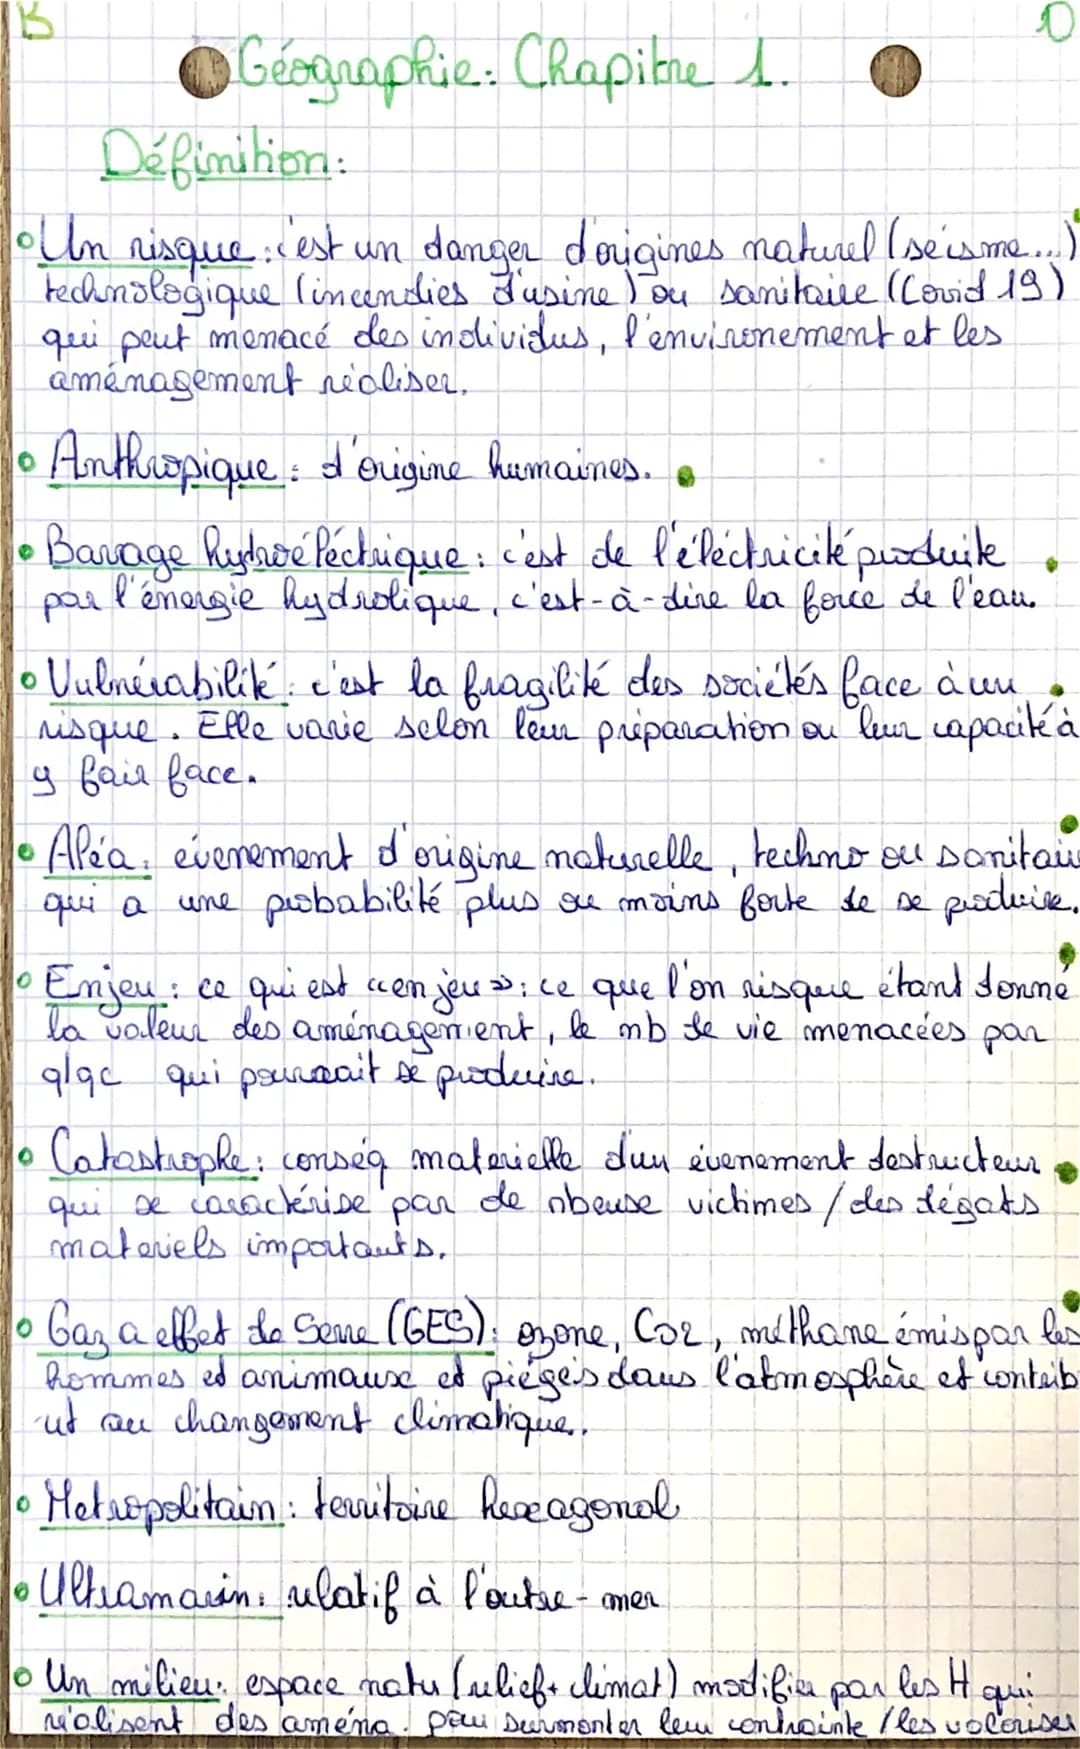 Géographie: Chapitre 1.
Définition:
Un risque: c'est un danger d'origines naturel (séisme...)
technologique (incendies d'usine) ou sanitaire (Covid 19)
qui peut menacé des individus, l'environement et les
aménagement réaliser.
Anthropique: d'origine humaines.
Barrage hydroéléctrique: c'est de l'éléctricité produite
par l'énergie hydrolique, c'est-à-dire la force de l'eau.
Vulnérabilité: c'est la fragilité des sociétés face à un
risque. Elle varie selon leur préparation ou leur capacité à
y fair face.
Aléa: évenement d'origine naturelle, techno ou sanitair
qui a une probabilité plus ou moins forte de se produire.
Enjeu: ce qui est «en jeu»: ce que l'on risque étant donné
la valeur des aménagement, le nb de vie menacées par
q/qc qui pourrait se produire.
Catastrophe: conséq materielle d'un évenement destructeur
qui se caractérise par de nbeuse victimes / des dégats
materiels importants.
Gaz a effet de Serre (GES): ozone, Co2, méthane émis par les
hommes et animaux et piégés dans l'atmosphère et contrib
ut au changement climatique.
Metropolitain: territoire hexagonal
Ultramarin: relatif à l'outre-mer
Un milieu: espace natu (relief+climat) modifier par les H qui
réalisent des aména. pour surmonter leur contrainte / les valoriser